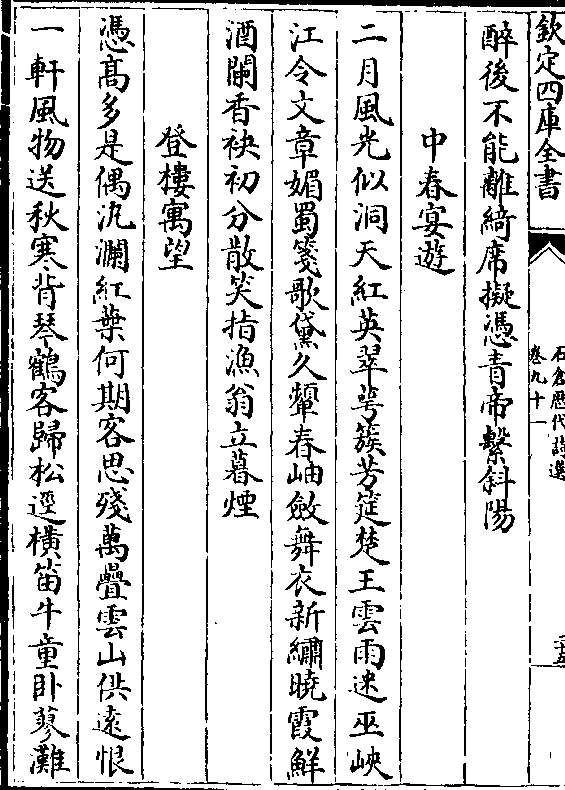 欽定四庫全書
石倉歷代詩選
卷九十一
醉後不能離綺席擬憑青帝繫斜陽
中春宴遊
二月風光似洞天紅英翠萼簇芳筵楚王雲雨迷巫峽
江令文章媚蜀箋歌黛乆顰春岫斂舞衣新繡曉霞鮮
酒闌香袂初分散笑指漁翁立暮煙
登樓寓望
憑髙多是偶汍瀾紅葉何期客思殘萬疊雲山供逺恨
一軒風物送秋寒背琴鶴客歸松逕橫笛牛童卧蓼灘